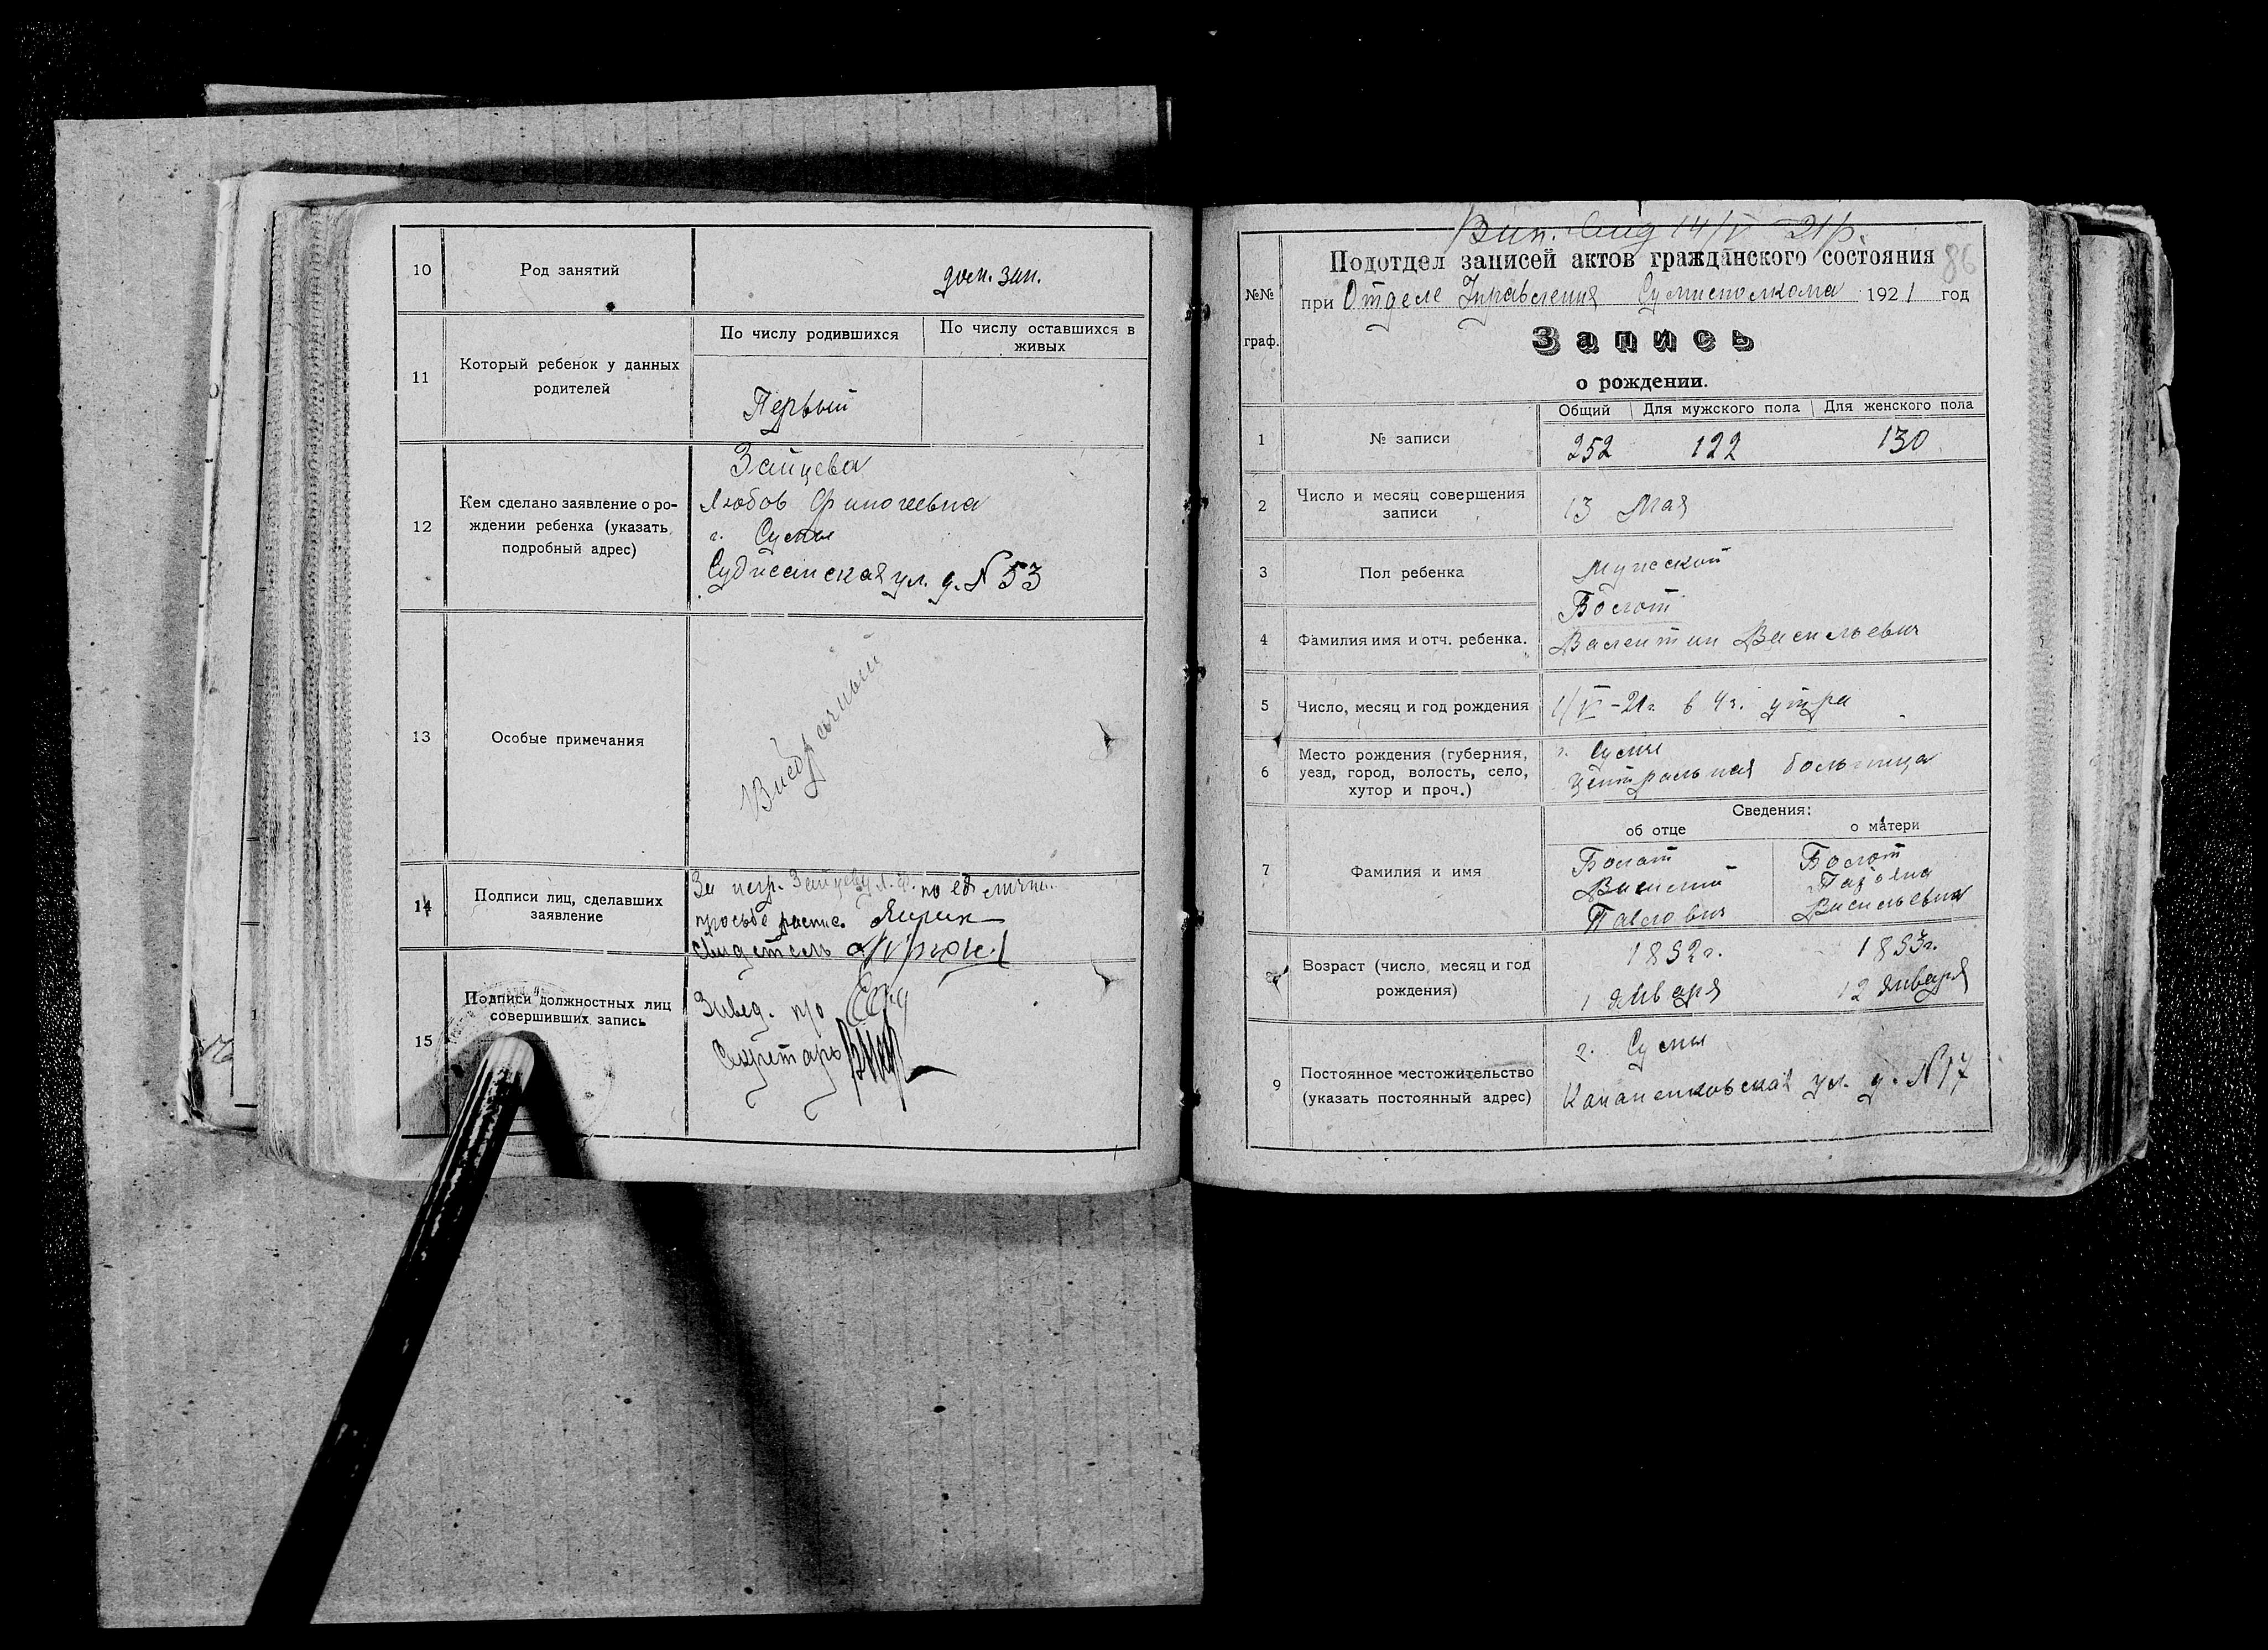 10
Род занятий
дом. зан.
11
Который ребенок у данных
родителей
По числу родившихся
По числу оставшихся в
живых
Первый
12
Кем сделано заявление о ро-
ждении ребенка (указать
подробный адрес)
Зайцева
Любов Финогеевна
г. Сумы
ул. д. № 53
13
Особые примечания
14
Подписи лиц, сделавших
заявление
За негр. Зайцеву Л. Ф. по её личн.
просьбе распис.
Свидетель
15
Подписи должностных лиц
совершивших запись
Завед. п/о
Секретарь
14/V 21р.
86
№№
граф.
Подотдел записей актов гражданского состояния
при Отделе Управления Сумисполкома 1921 год
Запись
о рождении.
1
№ записи
Общий
Для мужского пола
Для женского пола
252
122
130
2
Число и месяц совершения
записи
13 Мая
3
Пол ребенка
Мужской
4
Фамилия имя и отч. ребенка.
Болот
Валентин Васильевич
5
Число, месяц и год рождения
1/V -21г. в 4 ч. утра
6
Место рождения (губерния,
уезд, город, волость, село,
хутор и проч.)
г. Сумы
Центральная больница
Сведения:
об отце
о матери
7
Фамилия и имя
Болот
Василий
Павлович
Болот
Васильевна
8
Возраст (число, месяц и год
рождения)
1892г.
1 Января
1893г.
12 Января
9
Постоянное местожительство
(указать постоянный адрес)
г. Сумы
ул. д. № 17